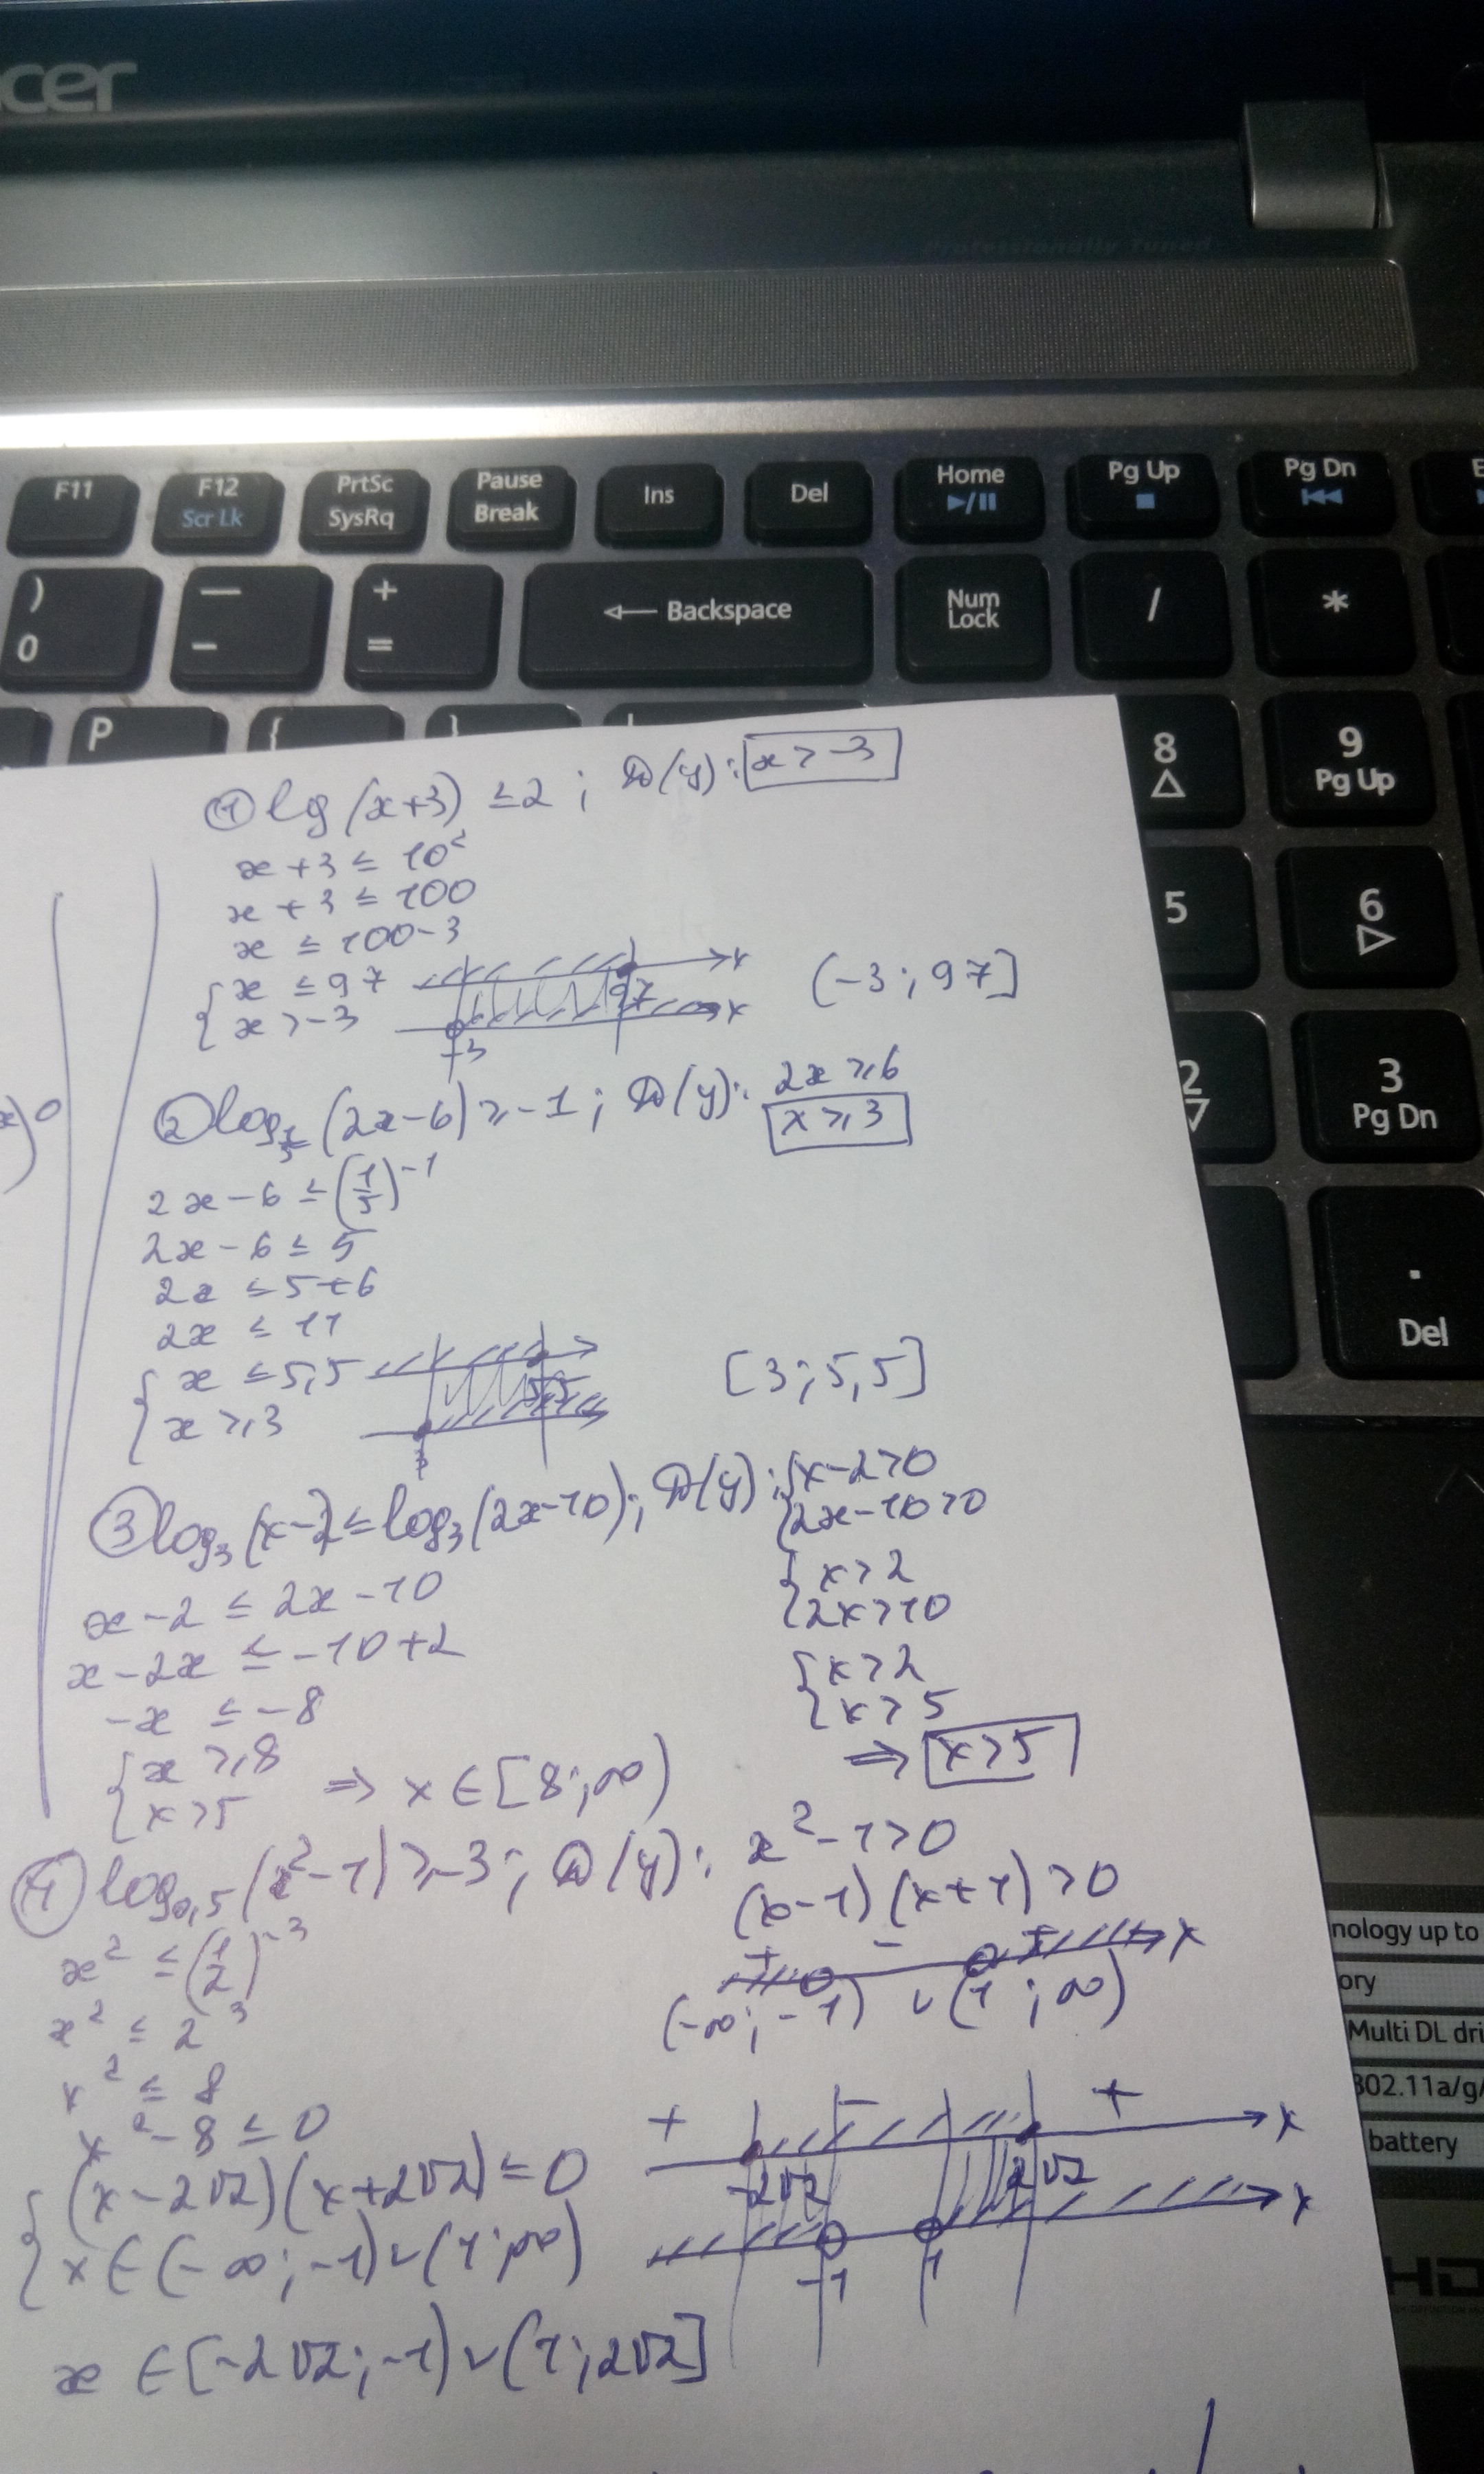 acer
Professionally Tuned
F11
F12
Scr Lk
PrtSc
SysRq
Pause
Break
Ins
Del
Home
Pg Up
Pg Dn
)
0
—
-
+
=
← Backspace
Num
Lock
/
*
P
{
}
8
9
Pg Up
5
6
2
3
Pg Dn
.
Del
① lg (x+3) ≤ 2 ; D(y): x > -3
x + 3 ≤ 10²
x + 3 ≤ 100
x ≤ 100 - 3
{ x ≤ 97
x > -3
97
x
x
-3
(-3; 97]
② log_{1/5} (2x-6) ≥ -1 ; D(y): 2x ≥ 6
x ≥ 3
2x - 6 ≤ (1/5)^{-1}
2x - 6 ≤ 5
2x ≤ 5+6
2x ≤ 11
{ x ≤ 5,5
x ≥ 3
5,5
3
[3; 5,5]
③ log₃ (x-2) ≤ log₃ (2x-10); D(y): { x-2>0
2x-10>0
x - 2 ≤ 2x - 10
{ x > 2
2x > 10
x - 2x ≤ -10 + 2
-x ≤ -8
{ x > 2
x > 5
⇒ x > 5
{ x ≥ 8
x > 5
⇒ x ∈ [8; ∞)
④ log_{0,5} (x²-1) ≥ -3 ; D(y): x² - 1 > 0
(x-1) (x+1) > 0
+ - + x
(-∞; -1) ∪ (1; ∞)
x² ≤ (1/2)^{-3}
x² ≤ 2³
x² ≤ 8
x² - 8 ≤ 0
{ (x - 2√2)(x + 2√2) ≤ 0
x ∈ (-∞; -1) ∪ (1; ∞)
+ - + x
-2√2 2√2
x
-1 1
x ∈ [-2√2; -1) ∪ (1; 2√2]
nology up to
ory
Multi DL dri
802.11a/g/
battery
HD